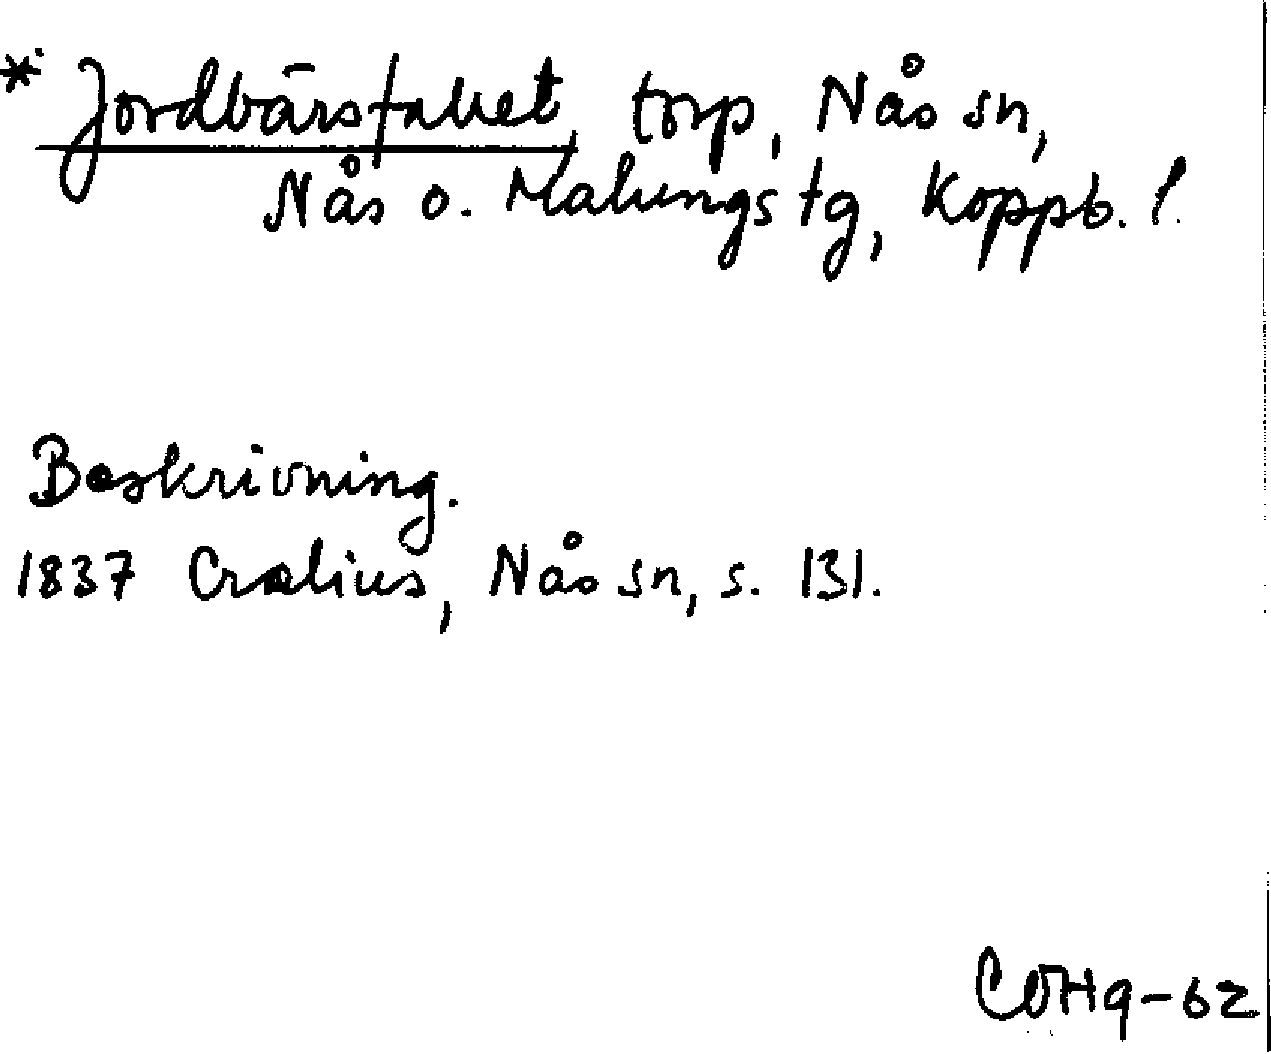 * Jordbärstaket, torp, Nås sn,
Nås o. Malungs tg, Koppb. l.
Beskrivning.
1837 Crælius, Nås sn, s. 131.
COHg-62